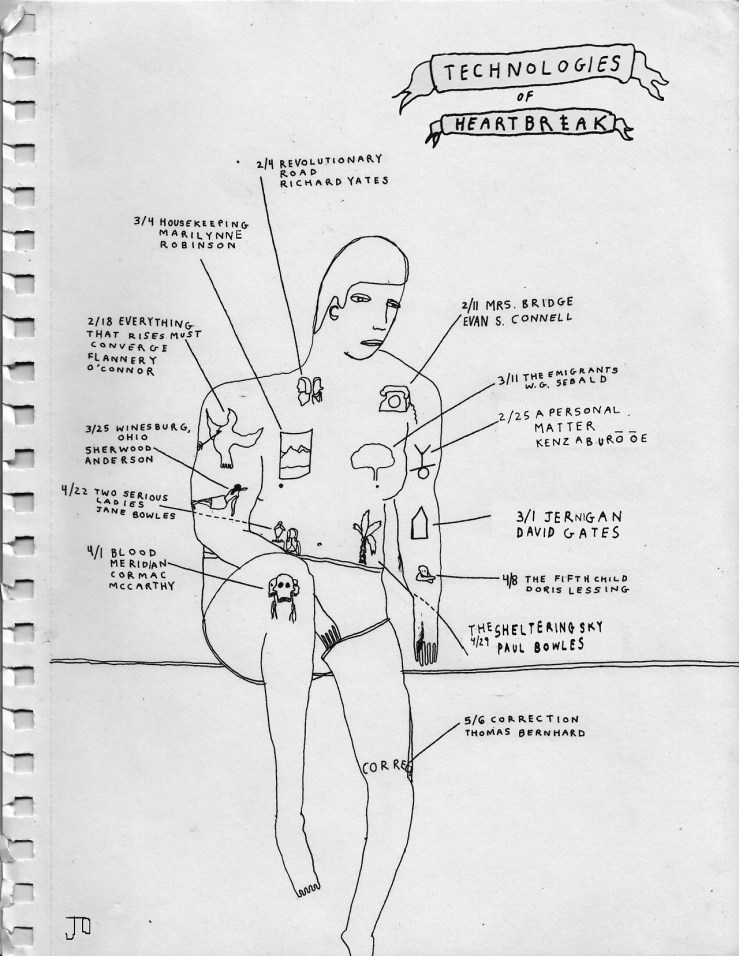 TECHNOLOGIES
OF
HEARTBREAK
2/4 REVOLUTIONARY
ROAD
RICHARD YATES
3/4 HOUSEKEEPING
MARILYNNE
ROBINSON
2/11 MRS. BRIDGE
EVAN S. CONNELL
2/18 EVERYTHING
THAT RISES MUST
CONVERGE
FLANNERY
O'CONNOR
3/11 THE EMIGRANTS
W.G. SEBALD
2/25 A PERSONAL
MATTER
KENZABURŌ ŌE
3/25 WINESBURG,
OHIO
SHERWOOD
ANDERSON
4/22 TWO SERIOUS
LADIES
JANE BOWLES
3/1 JERNIGAN
DAVID GATES
4/1 BLOOD
MERIDIAN
CORMAC
MCCARTHY
4/8 THE FIFTH CHILD
DORIS LESSING
THE SHELTERING SKY
4/29 PAUL BOWLES
5/6 CORRECTION
THOMAS BERNHARD
CORREC
JD